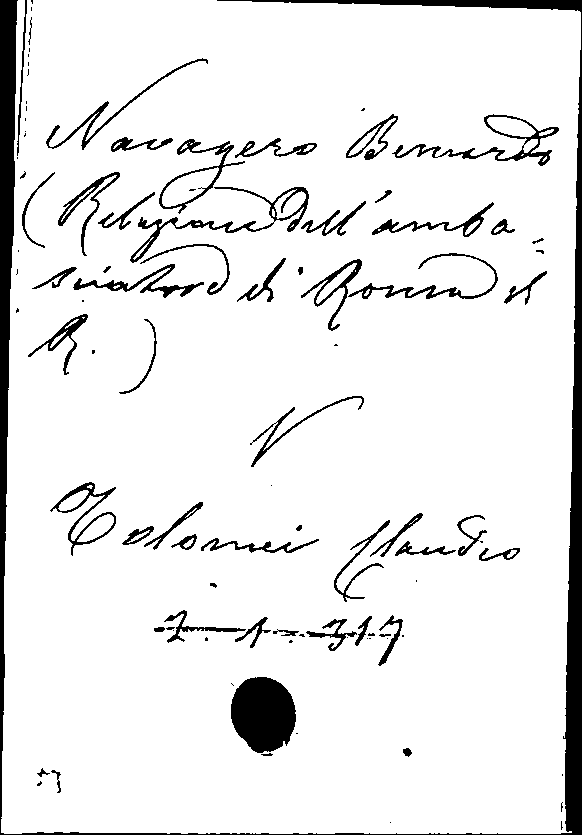 Navagero Bernardo
(Relazione dell'amba-
sciatore di Roma al
R.)
V
Tolomei Claudio
2.1.317
57